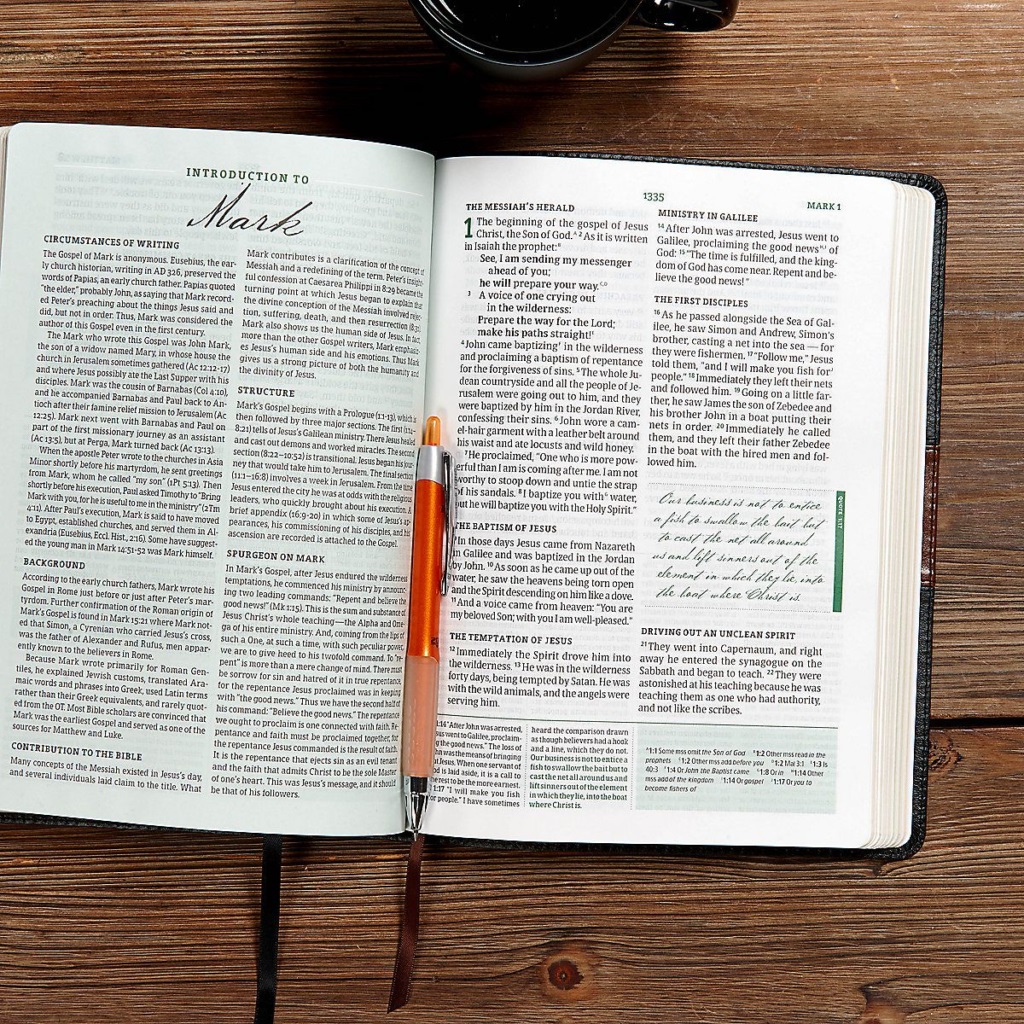 INTRODUCTION TO
Mark
CIRCUMSTANCES OF WRITING
The Gospel of Mark is anonymous. Eusebius, the ear-
ly church historian, writing in AD 326, preserved the
words of Papias, an early church father. Papias quoted
"the elder," probably John, as saying that Mark record-
ed Peter's preaching about the things Jesus said and
did, but not in order. Thus, Mark was considered the
author of this Gospel even in the first century.
The Mark who wrote this Gospel was John Mark,
the son of a widow named Mary, in whose house the
church in Jerusalem sometimes gathered (Ac 12:12-17)
and where Jesus possibly ate the Last Supper with his
disciples. Mark was the cousin of Barnabas (Col 4:10),
and he accompanied Barnabas and Paul back to An-
tioch after their famine relief mission to Jerusalem (Ac
12:25). Mark next went with Barnabas and Paul on
part of the first missionary journey as an assistant
(Ac 13:5), but at Perga, Mark turned back (Ac 13:13).
When the apostle Peter wrote to the churches in Asia
Minor shortly before his martyrdom, he sent greetings
from Mark, whom he called "my son" (1Pt 5:13). Then
shortly before his execution, Paul asked Timothy to "Bring
Mark with you, for he is useful to me in the ministry" (2Tm
4:11). After Paul's execution, Mark is said to have moved
to Egypt, established churches, and served them in Al-
exandria (Eusebius, Eccl. Hist., 2:16). Some have suggest-
ed the young man in Mark 14:51-52 was Mark himself.
BACKGROUND
According to the early church fathers, Mark wrote his
Gospel in Rome just before or just after Peter's mar-
tyrdom. Further confirmation of the Roman origin of
Mark's Gospel is found in Mark 15:21 where Mark not-
ed that Simon, a Cyrenian who carried Jesus's cross,
was the father of Alexander and Rufus, men appar-
ently known to the believers in Rome.
Because Mark wrote primarily for Roman Gen-
tiles, he explained Jewish customs, translated Ara-
maic words and phrases into Greek, used Latin terms
rather than their Greek equivalents, and rarely quot-
ed from the OT. Most Bible scholars are convinced that
Mark was the earliest Gospel and served as one of the
sources for Matthew and Luke.
CONTRIBUTION TO THE BIBLE
Many concepts of the Messiah existed in Jesus's day,
and several individuals laid claim to the title. What
Mark contributes is a clarification of the concept of
Messiah and a redefining of the term. Peter's insight-
ful confession at Caesarea Philippi in 8:29 became the
turning point at which Jesus began to explain that
the divine conception of the Messiah involved rejec-
tion, suffering, death, and then resurrection (8:31).
Mark also shows us the human side of Jesus. In
more than the other Gospel writers, Mark emphasiz-
es Jesus's human side and his emotions. Thus Mark
gives us a strong picture of both the humanity and
the divinity of Jesus.
STRUCTURE
Mark's Gospel begins with a Prologue (1:1-13), which is
then followed by three major sections. The first (1:14–
8:21) tells of Jesus's Galilean ministry. There Jesus healed
and cast out demons and worked miracles. The second
section (8:22–10:52) is transitional. Jesus began his jour-
ney that would take him to Jerusalem. The final section
(11:1–16:8) involves a week in Jerusalem. From the time
Jesus entered the city he was at odds with the religious
leaders, who quickly brought about his execution. A
brief appendix (16:9-20) in which some of Jesus's ap-
pearances, his commissioning of his disciples, and his
ascension are recorded is attached to the Gospel.
SPURGEON ON MARK
In Mark's Gospel, after Jesus endured the wilderness
temptations, he commenced his ministry by announc-
ing two leading commands: "Repent and believe the
good news!" (Mk 1:15). This is the sum and substance of
Jesus Christ's whole teaching—the Alpha and Ome-
ga of his entire ministry. And, coming from the lips of
such a One, at such a time, with such peculiar power,
we are to give heed to his twofold command. To "re-
pent" is more than a mere change of mind. There must
be sorrow for sin and hatred of it in true repentance,
for the repentance Jesus proclaimed was in keeping
with "the good news." Thus we have the second half of
his command: "Believe the good news." The repentance
we ought to proclaim is one connected with faith. Re-
pentance and faith must be proclaimed together, for
the repentance Jesus commanded is the result of faith.
It is the repentance that ejects sin as an evil tenant
and the faith that admits Christ to be the sole Master
of one's heart. This was Jesus's message, and it should
be that of his followers.
1335
MARK 1
THE MESSIAH'S HERALD
1 The beginning of the gospel of Jesus
Christ, the Son of God. 2 As it is written
in Isaiah the prophet:
See, I am sending my messenger
ahead of you;
he will prepare your way.
3 A voice of one crying out
in the wilderness:
Prepare the way for the Lord;
make his paths straight!
4 John came baptizing in the wilderness
and proclaiming a baptism of repentance
for the forgiveness of sins. 5 The whole Ju-
dean countryside and all the people of Je-
rusalem were going out to him, and they
were baptized by him in the Jordan River,
confessing their sins. 6 John wore a cam-
el-hair garment with a leather belt around
his waist and ate locusts and wild honey.
7 He proclaimed, "One who is more pow-
erful than I am is coming after me. I am not
worthy to stoop down and untie the strap
of his sandals. 8 I baptize you with water,
but he will baptize you with the Holy Spirit."
THE BAPTISM OF JESUS
In those days Jesus came from Nazareth
in Galilee and was baptized in the Jordan
by John. 10 As soon as he came up out of the
water, he saw the heavens being torn open
and the Spirit descending on him like a dove.
11 And a voice came from heaven: "You are
my beloved Son; with you I am well-pleased."
THE TEMPTATION OF JESUS
12 Immediately the Spirit drove him into
the wilderness. 13 He was in the wilderness
forty days, being tempted by Satan. He was
with the wild animals, and the angels were
serving him.
MINISTRY IN GALILEE
14 After John was arrested, Jesus went to
Galilee, proclaiming the good news of
God: 15 "The time is fulfilled, and the king-
dom of God has come near. Repent and be-
lieve the good news!"
THE FIRST DISCIPLES
16 As he passed alongside the Sea of Gal-
ilee, he saw Simon and Andrew, Simon's
brother, casting a net into the sea — for
they were fishermen. 17 "Follow me," Jesus
told them, "and I will make you fish for
people." 18 Immediately they left their nets
and followed him. 19 Going on a little far-
ther, he saw James the son of Zebedee and
his brother John in a boat putting their
nets in order. 20 Immediately he called
them, and they left their father Zebedee
in the boat with the hired men and fol-
lowed him.
Our business is not to entice
a fish to swallow the bait but
to cast the net all around
us and lift sinners out of the
element in which they lie, into
the boat where Christ is.
QUOTE
DRIVING OUT AN UNCLEAN SPIRIT
21 They went into Capernaum, and right
away he entered the synagogue on the
Sabbath and began to teach. 22 They were
astonished at his teaching because he was
teaching them as one who had authority,
and not like the scribes.
1:14 "After John was arrested,
Jesus went to Galilee, proclaim-
ing the good news." The loss of
John was the means of bringing
out Jesus. When one servant of
God is laid aside, it is a call to
the rest to be the more earnest.
1:17 "I will make you fish
for people." I have sometimes
heard the comparison drawn
as though believers had a hook
and a line, which they do not.
Our business is not to entice a
fish to swallow the bait but to
cast the net all around us and
lift sinners out of the element
in which they lie, into the boat
where Christ is.
1:1 Some mss omit the Son of God 1:2 Other mss read in the
prophets 1:2 Other mss add before you 1:2 Mal 3:1 1:3 Is
40:3 1:4 Or John the Baptist came 1:8 Or in 1:14 Other
mss add of the kingdom 1:14 Or gospel 1:17 Or you to
become fishers of